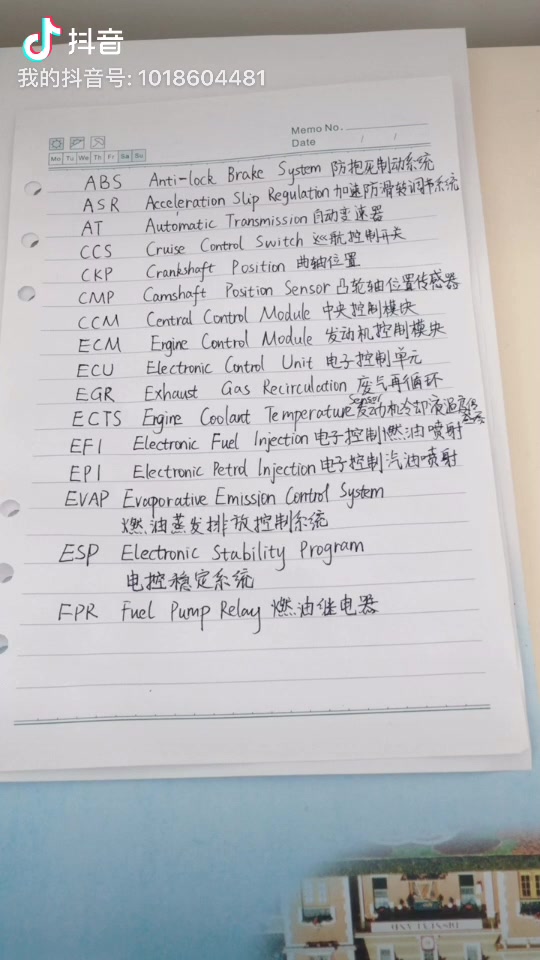 抖音
我的抖音号: 1018604481
Memo No.
Date / /
Mo Tu We Th Fr Sa Su
ABS Anti-lock Brake System 防抱死制动系统
ASR Acceleration Slip Regulation 加速防滑转调节系统
AT Automatic Transmission 自动变速器
CCS Cruise Control Switch 巡航控制开关
CKP Crankshaft Position 曲轴位置
CMP Camshaft Position Sensor 凸轮轴位置传感器
CCM Central Control Module 中央控制模块
ECM Engine Control Module 发动机控制模块
ECU Electronic Control Unit 电子控制单元
EGR Exhaust Gas Recirculation 废气再循环
ECTS Engine Coolant Temperature Sensor 发动机冷却液温度传感器
EFI Electronic Fuel Injection 电子控制燃油喷射
EPI Electronic Petrol Injection 电子控制汽油喷射
EVAP Evaporative Emission Control System
燃油蒸发排放控制系统
ESP Electronic Stability Program
电控稳定系统
FPR Fuel Pump Relay 燃油继电器